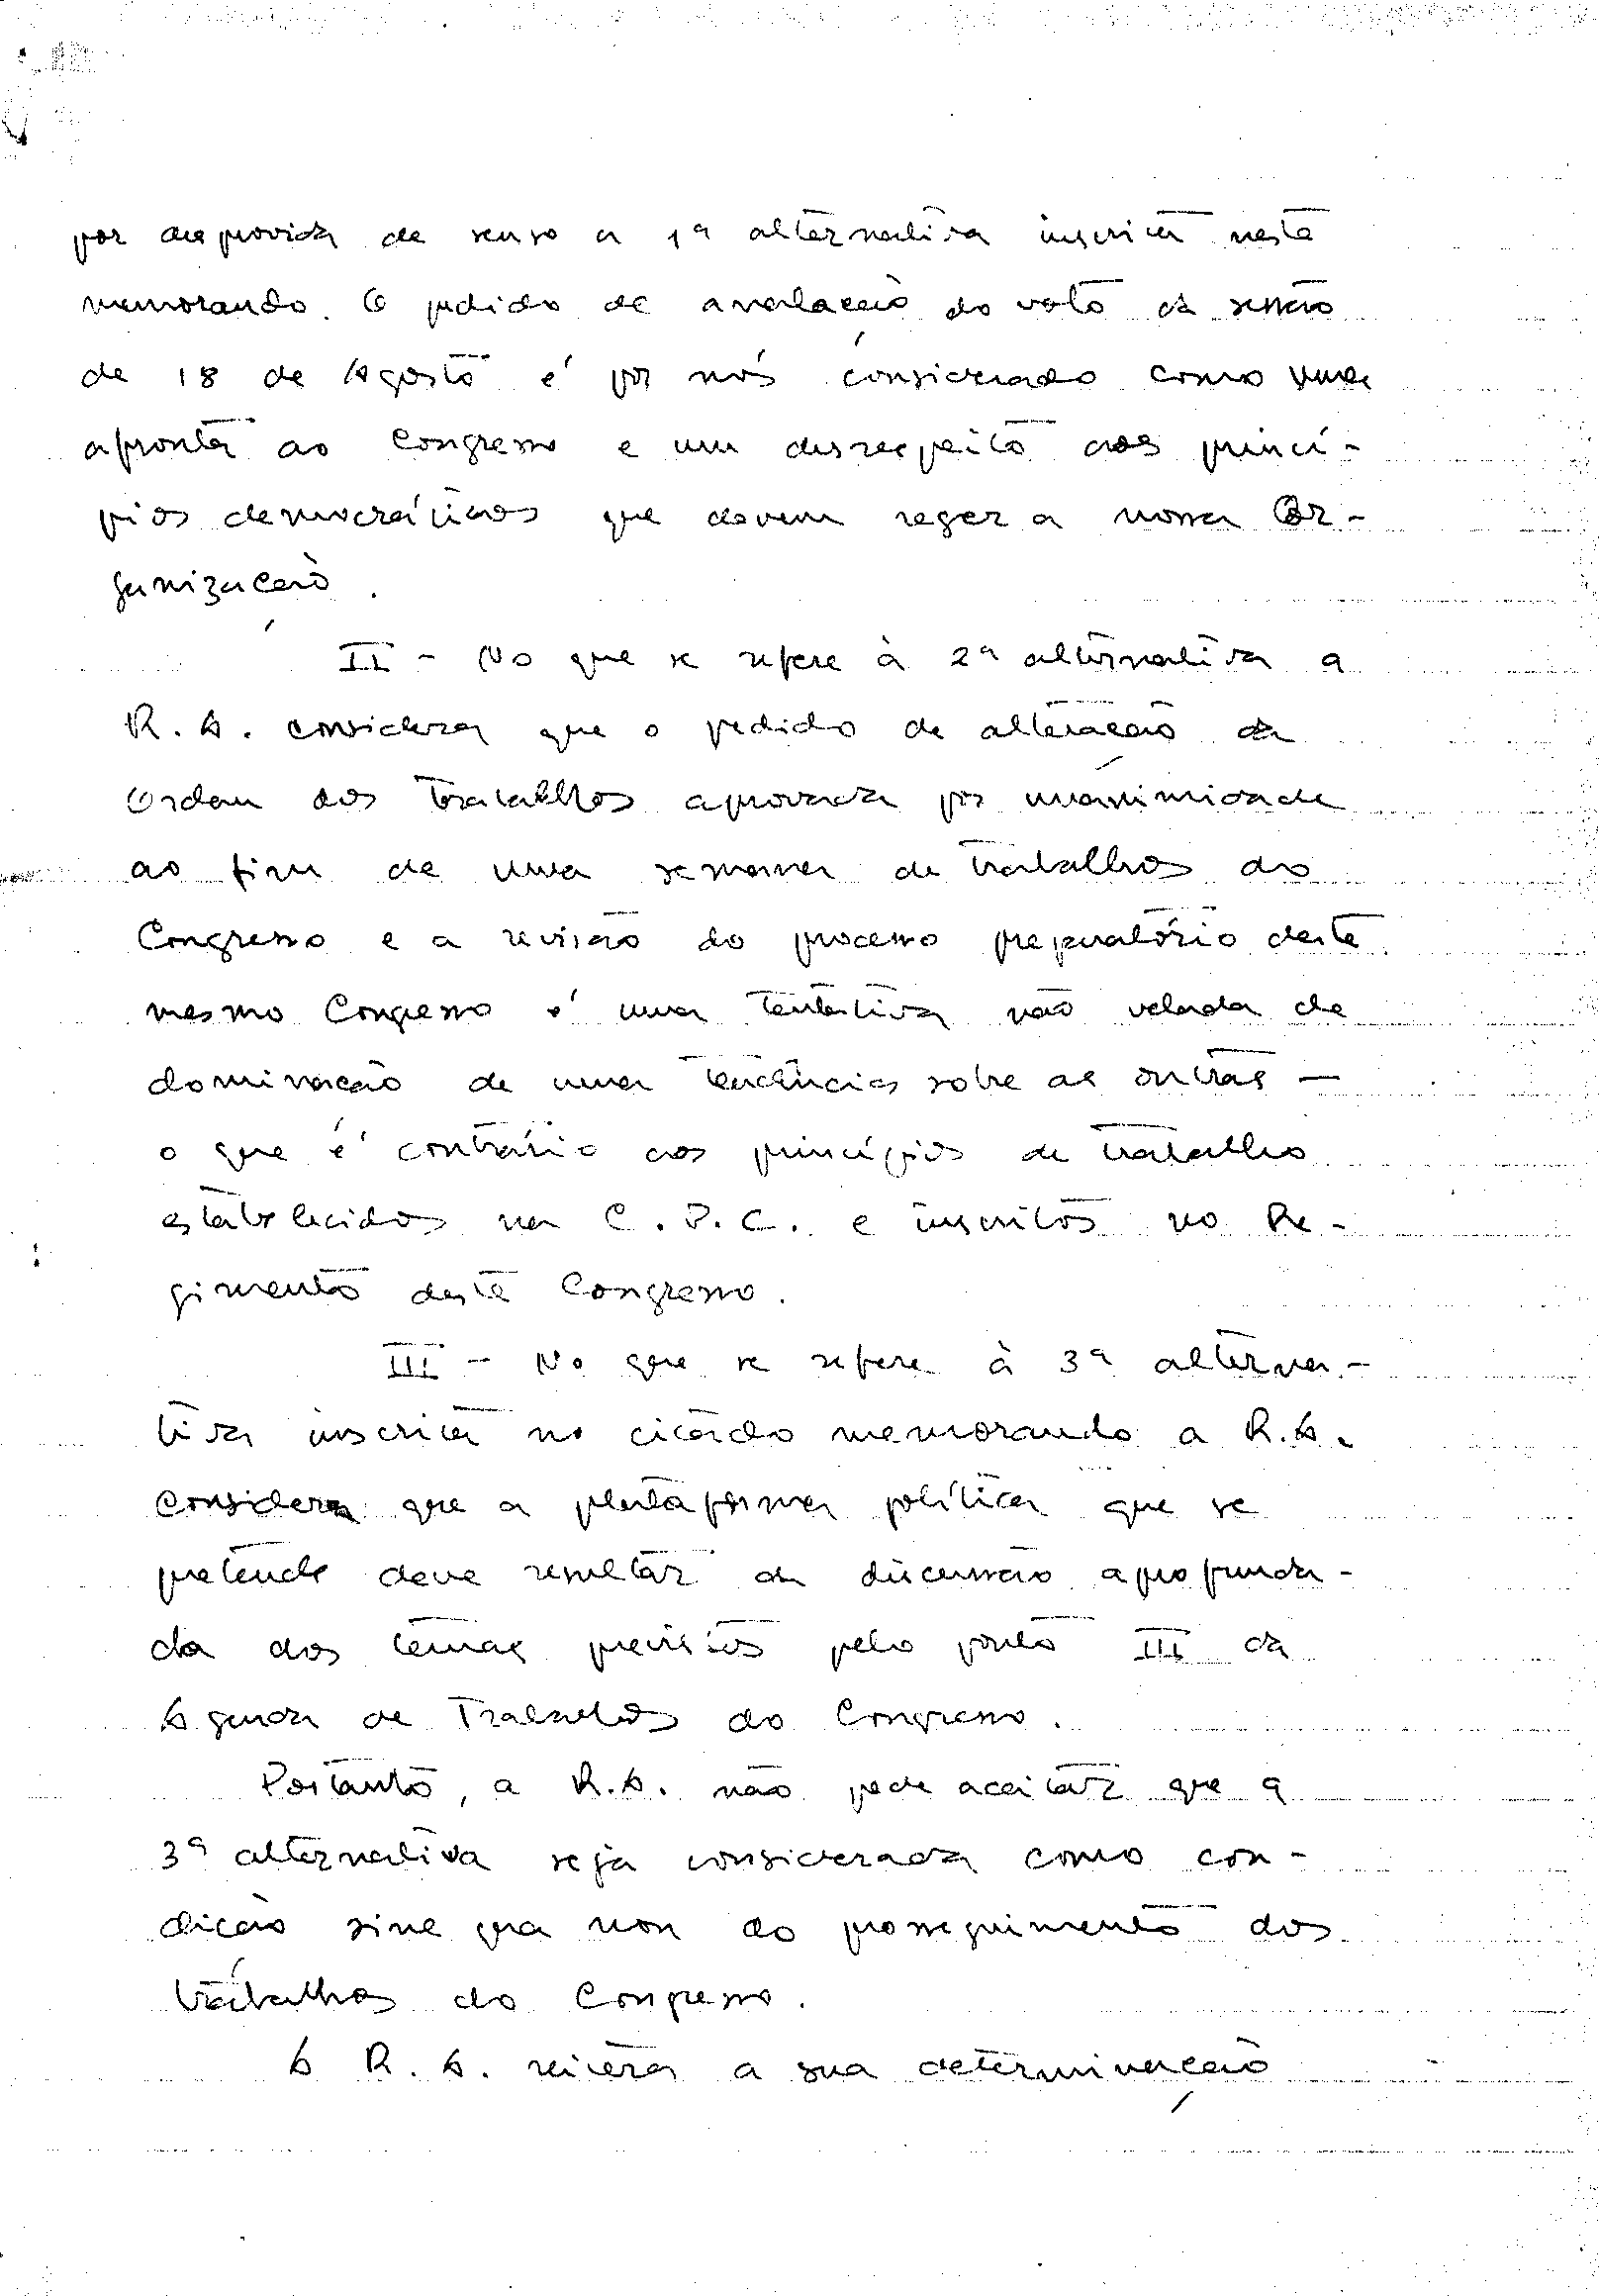 por desprovida de senso a 1ª alternativa inscrita neste
memorando. O pedido de anulação do voto da sessão
de 18 de Agosto é por nós considerado como uma
afronta ao Congresso e um desrespeito aos princí-
pios democráticos que devem reger a nossa Or-
ganização.
II - No que se refere à 2ª alternativa a
R.A. considera que o pedido de alteração da
Ordem dos Trabalhos aprovada por unanimidade
ao fim de uma semana de trabalhos do
Congresso e a revisão do processo preparatório deste
mesmo Congresso é uma tentativa não velada de
dominação de uma tendência sobre as outras —
o que é contrário aos princípios de trabalho
estabelecidos na C.P.C. e inscritos no Re-
gimento deste Congresso.
III - No que se refere à 3ª alterna-
tiva inscrita no citado memorando a R.A.
considera que a plataforma política que se
pretende deve resultar da discussão aprofunda-
da dos temas previstos pelo ponto III da
Agenda de Trabalhos do Congresso.
Portanto, a R.A. não pode aceitar que a
3ª alternativa seja considerada como con-
dição sine qua non do prosseguimento dos
trabalhos do Congresso.
A R.A. reitera a sua determinação